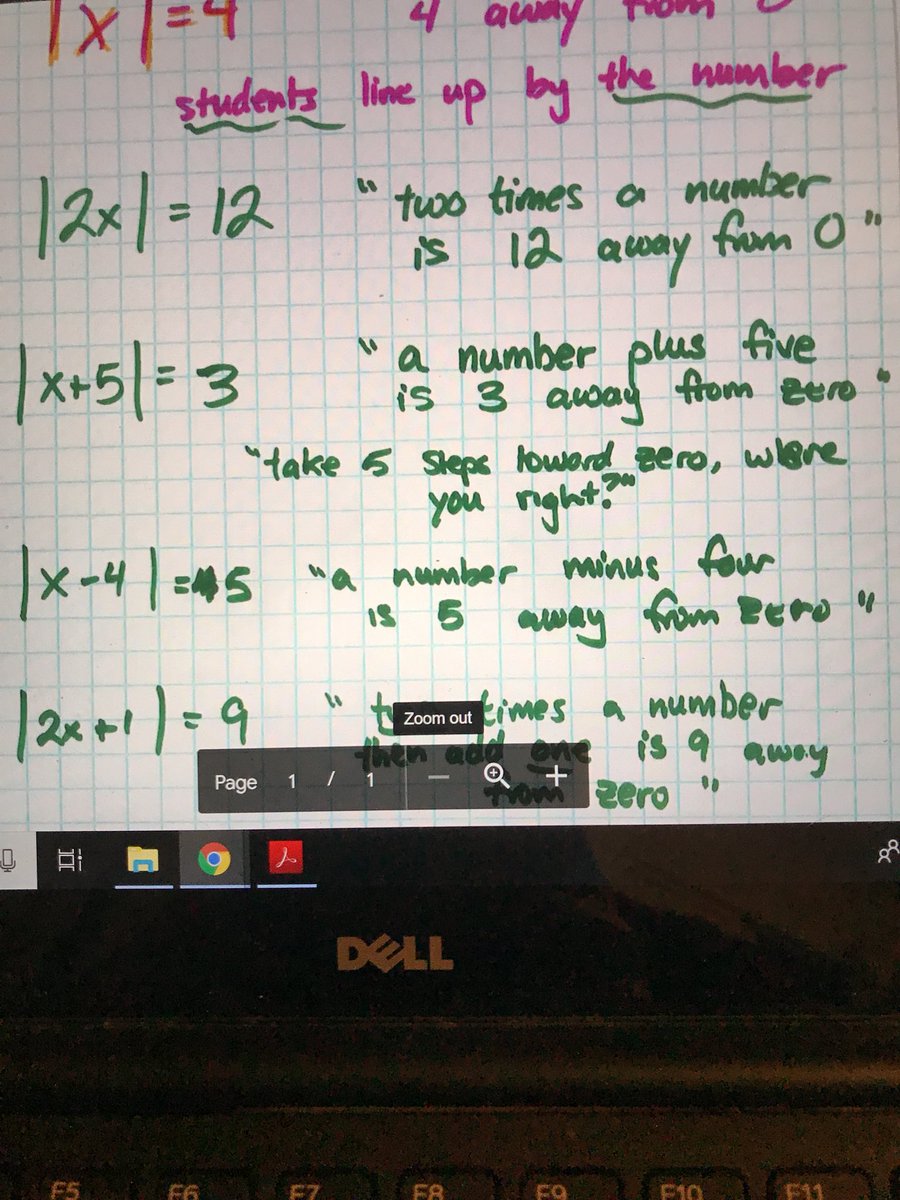 |x|=4 4 away from 0
students line up by the number
|2x| = 12 " two times a number
is 12 away from 0 "
|x+5| = 3 " a number plus five
is 3 away from zero "
"take 5 steps toward zero, where
you right?"
|x-4| = 5 "a number minus four
is 5 away from zero "
|2x+1| = 9 " times a number
Zoom out
then add one is 9 away
from zero "
Page 1 / 1 — +
DELL
F5 F6 F7 F8 F9 F10 F11